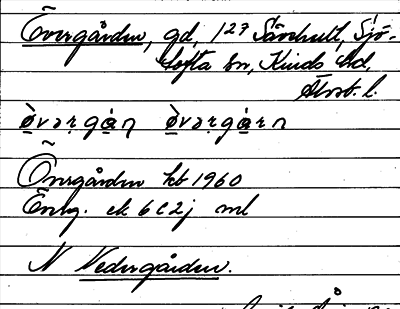 Övergården, gd, 1²⁷ Särehult, Sjö-
tofta sn, Kinds hd,
Älvsb. l.
ø̀vərgɑ̀ṇ ø̀vərgɑ̀rn
Övergården hb 1960
Enl. ek 6C2j ml
N Nedergården.